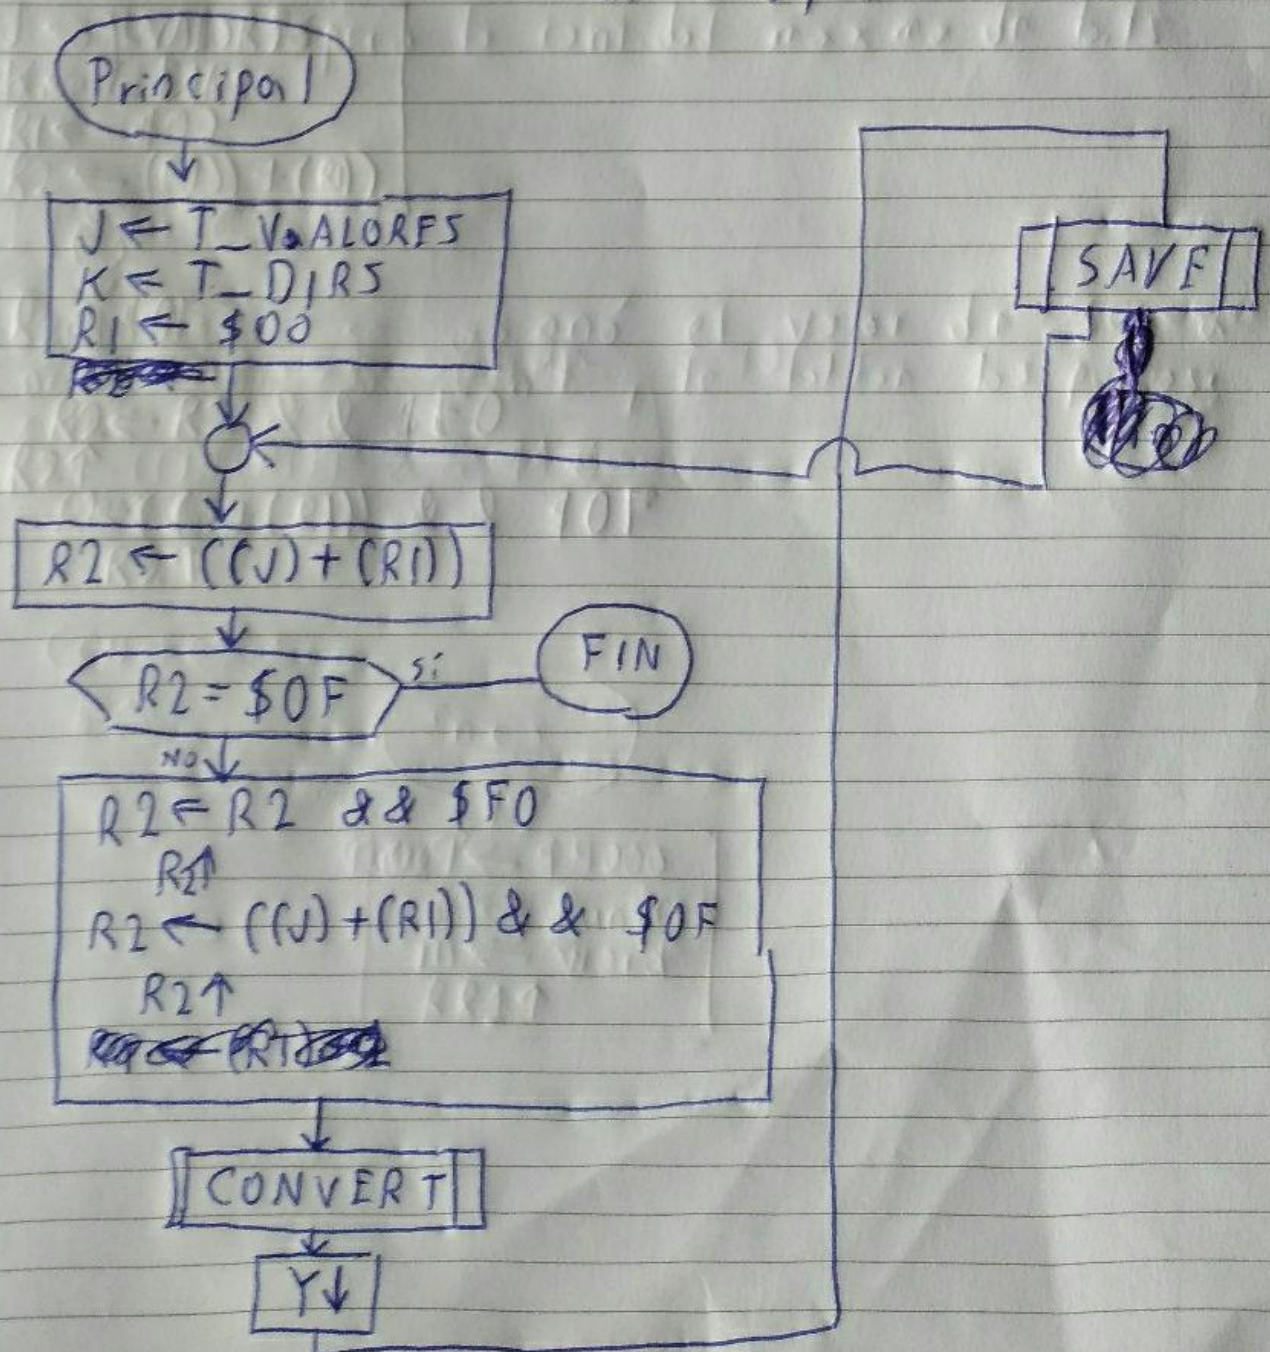 Principal
J ← T_VALORES
K ← T_DIRS
R1 ← $00
SAVE
R2 ← ((J)+(R1))
R2 = $0F
Sí
FIN
NO
R2 ← R2 && $F0
R2↑
R2 ← ((J)+(R1)) && $0F
R2↑
CONVERT
Y↓